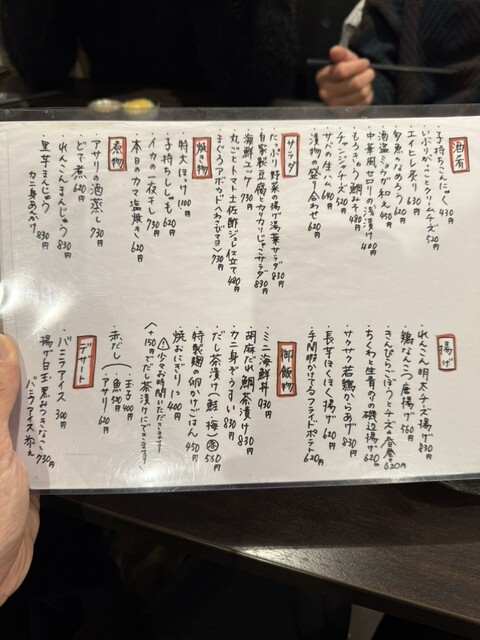 酒肴
・子持ちこんにゃく 430円
・いぶりがっことクリームチーズ 520円
・エイヒレ炙り 630円
・夕魚のなめろう 620円
・酒盗ミョウガ和え 450円
・中華風セロリの浅漬け 400円
・もろきゅう鯛みそ 480円
・チャンジャチーズ 520円
・サバの生ハム 690円
・漬物の盛り合わせ 620円
サラダ
・たっぷり野菜の揚げ湯葉サラダ 830円
・自家製豆腐とカリカリじゃこサラダ 830円
・海鮮ユッケ 730円
・丸ごとトマト土佐酢ジュレ仕立て 480円
・まぐろアボカド〈わさびマヨ〉 730円
焼き物
・特大ほっけ 1100円
・子持ちししゃも 620円
・イカの一夜干し 730円
・本日のカマ塩焼き 620円
煮物
・アサリの酒蒸し 730円
・どて煮 620円
・れんこんまんじゅう 830円
・里芋まんじゅう
カニ身あんかけ 830円
揚げ
・れんこん明太チーズ揚げ 830円
・鶏なんこつ唐揚げ 560円
・きんぴらごぼうとチーズの春巻き 620円
・ちくわと生青のりの磯辺揚げ 620円
・サクサク若鶏からあげ 830円
・長芋ほくほく揚げ 620円
・手間暇かけてるフライドポテト 620円
御飯物
・ミニ海鮮丼 930円
・胡麻だれ鯛茶漬け 830円
・カニ身ぞうすい 830円
・だし茶漬け(鮭・梅) 560円
・特製麹の卵かけごはん 450円
・焼おにぎり 1つ 400円
少々お時間いただきます
〈+150円でだし茶漬けにできます〉
・赤だし
玉子 400円
魚 520円
アサリ 620円
デザート
・バニラアイス 300円
・揚げ白玉・黒みつきなこ
バニラアイス添え 730円